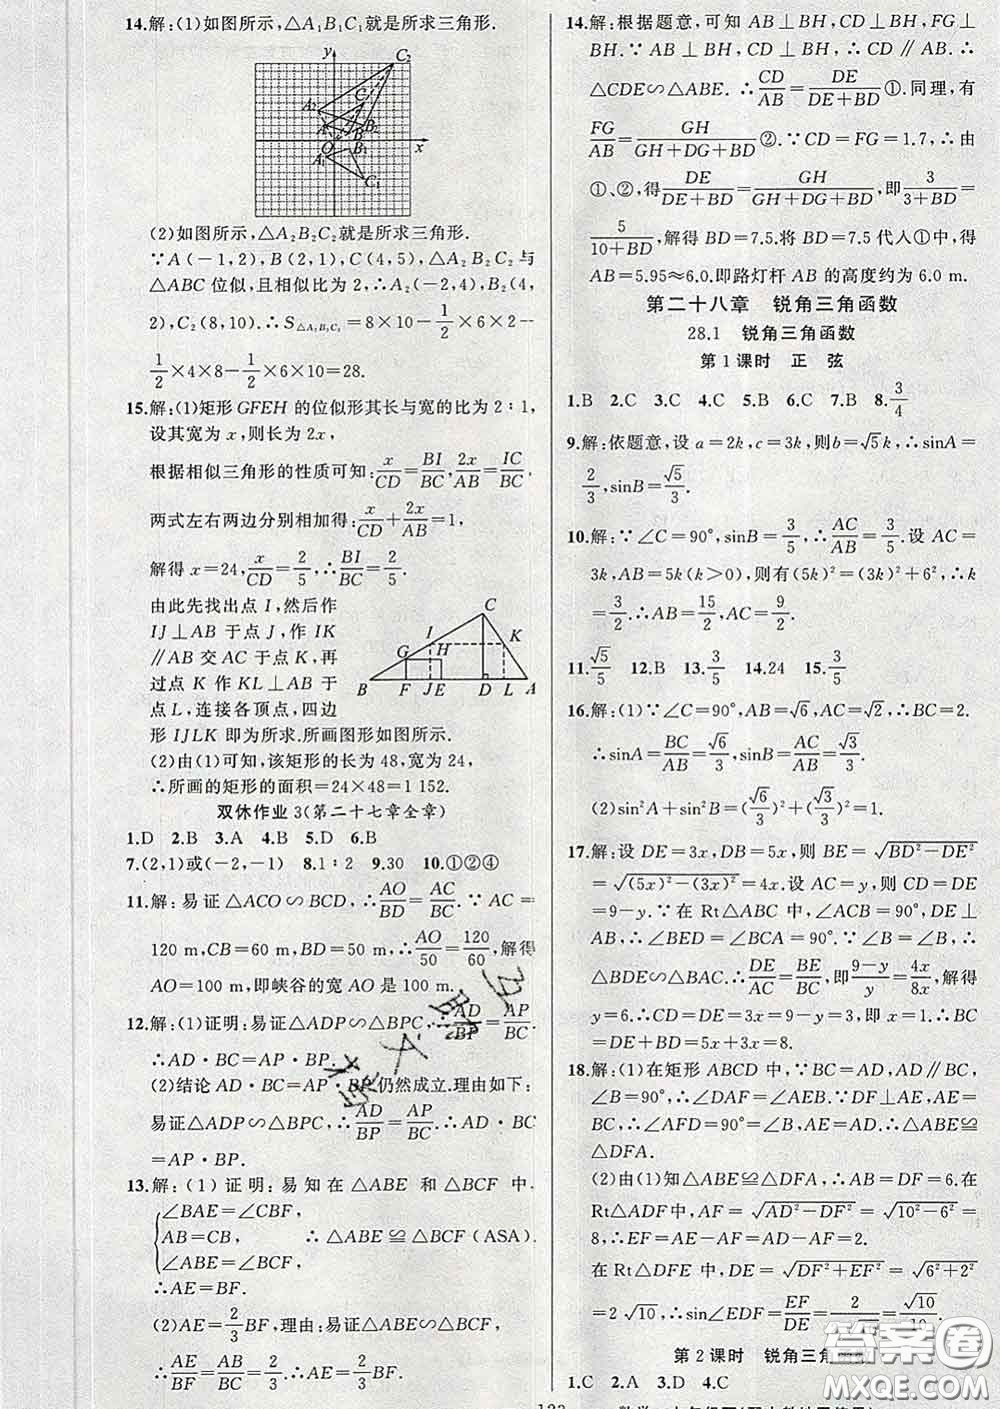 14.解:(1)如图所示,△A₁B₁C₁就是所求三角形.
y
C₂
A₂
C
A
B
B₂
O
x
A₁
B₁
C₁
(2)如图所示,△A₂B₂C₂就是所求三角形.
∵A(-1,2),B(2,1),C(4,5),△A₂B₂C₂与
△ABC位似,且相似比为2,∴A₂(-2,4),B₂(4,
2),C₂(8,10).∴S△A₂B₂C₂=8×10-1/2×6×2-
1/2×4×8-1/2×6×10=28.
15.解:(1)矩形GFEH的位似形其长与宽的比为2∶1,
设其宽为x,则长为2x,
根据相似三角形的性质可知:x/CD=BI/BC,2x/AB=IC/BC.
两式左右两边分别相加得:x/CD+2x/AB=1,
解得x=24,x/CD=2/5,∴BI/BC=2/5.
由此先找出点I,然后作
IJ⊥AB于点J,作IK
∥AB交AC于点K,再
过点K作KL⊥AB于
点L,连接各顶点,四边
形IJLK即为所求.所画图形如图所示.
C
I
K
G
H
B
F
J
E
D
L
A
(2)由(1)可知,该矩形的长为48,宽为24,
∴所画的矩形的面积=24×48=1 152.
双休作业3(第二十七章全章)
1.D 2.B 3.A 4.B 5.D 6.B
7.(2,1)或(-2,-1) 8.1∶2 9.30 10.①②④
11.解:易证△ACO∽BCD,∴AO/BD=AC/BC.∵AC=
120 m,CB=60 m,BD=50 m,∴AO/50=120/60,解得
AO=100 m,即峡谷的宽AO是100 m.
12.解:(1)证明:易证△ADP∽△BPC,∴AD/BP=AP/BC.
∴AD·BC=AP·BP.
(2)结论AD·BC=AP·BP仍然成立.理由如下:
易证△ADP∽△BPC,∴AD/BP=AP/BC.∴AD·BC
=AP·BP.
13.解:(1)证明:易知在△ABE和△BCF中.
∠BAE=∠CBF,
AB=CB, ∴△ABE≌△BCF(ASA).
∠ABE=∠BCF,
∴AE=BF.
(2)AE=2/3BF,理由:易证△ABE∽△BCF,
∴AE/BF=AB/BC=2/3,∴AE=2/3BF.
14.解:根据题意,可知AB⊥BH,CD⊥BH,FG⊥
BH.∵AB⊥BH,CD⊥BH,∴CD∥AB.∴
△CDE∽△ABE.∴CD/AB=DE/(DE+BD)①.同理,有
FG/AB=GH/(GH+DG+BD)②.∵CD=FG=1.7,∴由
①、②,得DE/(DE+BD)=GH/(GH+DG+BD),即3/(3+BD)=
5/(10+BD),解得BD=7.5.将BD=7.5代人①中,得
AB=5.95≈6.0.即路灯杆AB的高度约为6.0 m.
第二十八章 锐角三角函数
28.1 锐角三角函数
第1课时 正弦
1.B 2.C 3.C 4.C 5.B 6.C 7.B 8.3/4
9.解:依题意,设a=2k,c=3k,则b=√5k,∴sinA=
2/3,sinB=√5/3.
10.解:∵∠C=90°,sinB=3/5,∴AC/AB=3/5.设AC=
3k,AB=5k(k>0),则有(5k)²=(3k)²+6²,∴k
=3/2.∴AB=15/2,AC=9/2.
11.√5/5 12.B 13.3/5 14.24 15.3/5
16.解:(1)∵∠C=90°,AB=√6,AC=√2,∴BC=2.
∴sinA=BC/AB=√6/3,sinB=AC/AB=√3/3.
(2)sin²A+sin²B=(√6/3)²+(√3/3)²=1.
17.解:设DE=3x,DB=5x,则BE=√(BD²-DE²)
=√((5x)²-(3x)²)=4x.设AC=y,则CD=DE
=9-y.∵在Rt△ABC中,∠ACB=90°,DE⊥
AB,∴∠BED=∠BCA=90°.∵∠B=∠B,∴
△BDE∽△BAC.∴DE/AC=BE/BC,即(9-y)/y=4x/8x,解得
y=6.∴CD=DE=3x=9-6=3,即x=1.∴BC
=BD+DE=5x+3x=8.
18.解:(1)在矩形ABCD中,∵BC=AD,AD∥BC,
∠B=90°,∴∠DAF=∠AEB.∵DF⊥AE,AE=
BC,∴∠AFD=90°=∠B,AE=AD.∴△ABE≌
△DFA.
(2)由(1)知△ABE≌△DFA,∴AB=DF=6.在
Rt△ADF中,AF=√(AD²-DF²)=√(10²-6²)=
8,∴EF=AE-AF=AD-AF=2.
在Rt△DFE中,DE=√(DF²+EF²)=√(6²+2²)
=2√10,∴sin∠EDF=EF/DE=2/(2√10)=√10/10.
第2课时 锐角三角函数
1.C 2.A 3.D 4.C
答案圈
MXQE.COM